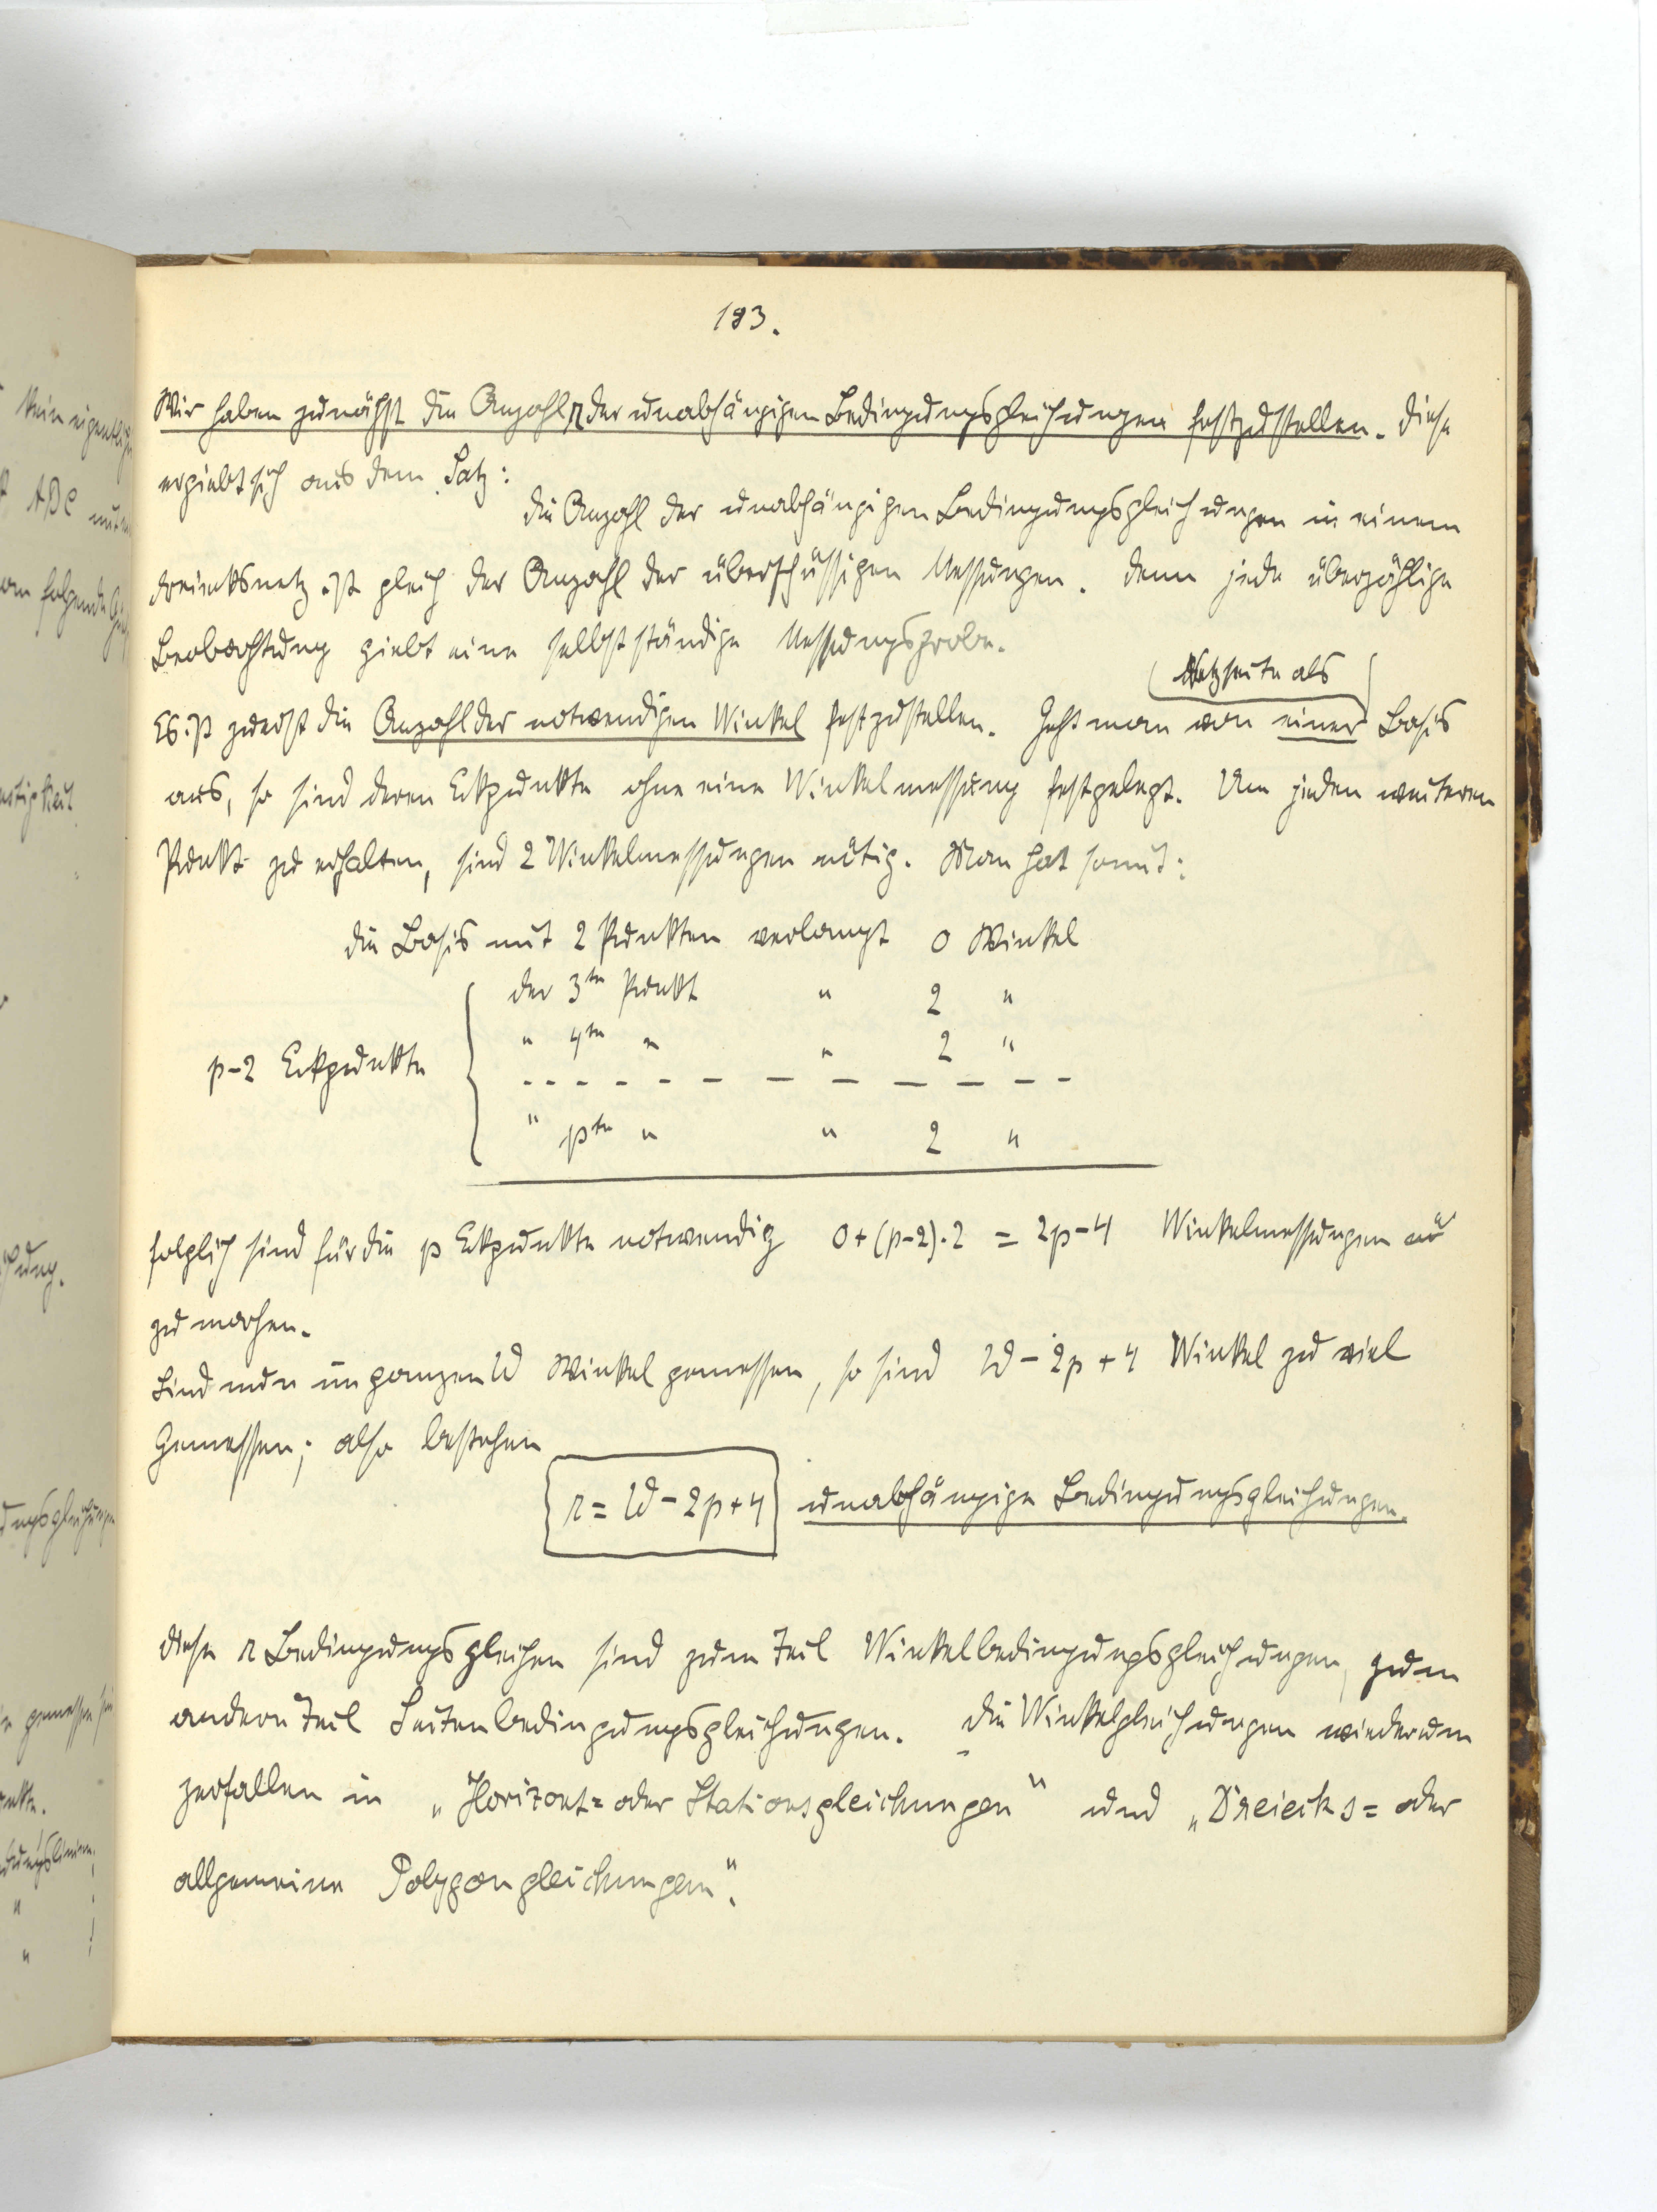 193.
Wir haben zunächst die Anzahl r der unabhängigen Bedingungsgleichungen festzustellen. Diese
ergiebt sich aus dem Satz:
Die Anzahl der unabhängigen Bedingungsgleichungen in einem
Dreiecksnetz ist gleich der Anzahl der überschüssigen Messungen. Denn jede überzählige
Beobachtung giebt eine selbstständige Messungsprobe.
Netzseite als
Es ist zuerst die Anzahl der notwendigen Winkel festzustellen. Geht man von einer Basis
aus, so sind deren Eckpunkte ohne eine Winkelmessung festgelegt. Um jeden weiteren
Punkt zu erhalten, sind 2 Winkelmessungen nötig. Man hat somit:
die Basis mit 2 Punkten verlangt 0 Winkel
der 3te Punkt " 2 "
" 4te " " 2 "
p-2 Eckpunkte
" pte " " 2 "
folglich sind für die p Eckpunkte notwendig 0+(p-2)·2 = 2p-4 Winkelmessungen
zu machen.
Sind nun im ganzen W Winkel gemessen, so sind W - 2p + 4 Winkel zu viel
Gemessen; also bestehen
r = W - 2p + 4 unabhängige Bedingungsgleichungen.
Diese r Bedingungsgleichen sind zum Teil Winkelbedingungsgleichungen, zum
andern Teil Seitenbedingungsgleichungen. Die Winkelgleichungen wiederum
zerfallen in „Horizont= oder Stationsgleichungen" und „Dreiecks= oder
allgemeine Polygongleichungen".